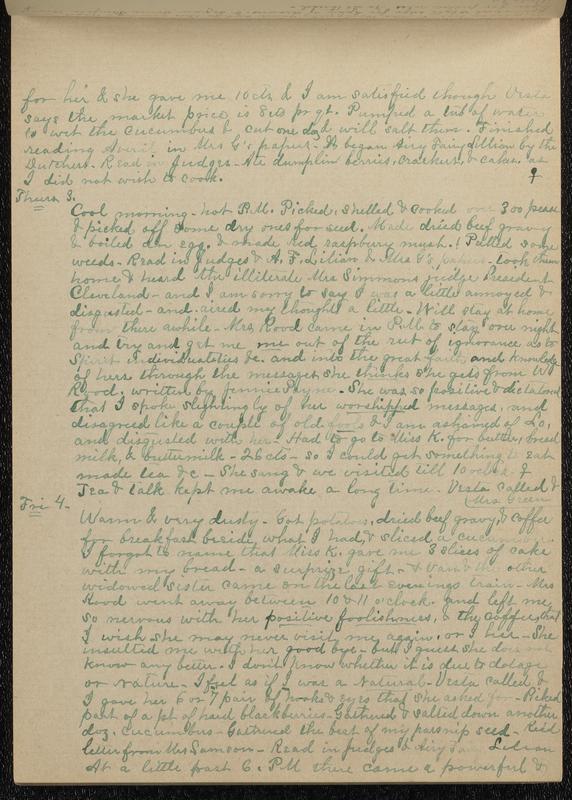 for her & she gave me 10cts & I am satisfied though Vesta
says the market price is 8cts pr qt. Pumped a tub of water
to wet the cucumbers & cut one doz & will salt them. Finished
reading in Mrs G's papers - & began Airy Fairy Lillian by the
Dutchess. Read in Judges - Ate dumplin berries, crackers, & cakes, as
I did not wish to cook.
Thurs 3.
Cool morning - hot P.M. Picked, shelled & cooked over 300 peas
& picked off some dry ones for seed. Made dried beef gravy
& boiled an egg. & made red raspberry mush.! Pulled some
weeds - Read in Judges & A. F. Lilian & Mrs G's papers - took them
home & heard the illiterate Mrs Simmons judge President
Cleveland - and I am sorry to say I was a little annoyed &
disgusted - and aired my thoughts a little - Will stay at home
from there awhile - Mrs Rood came in P.M. to stay over night
and try and get me me out of the rut of ignorance as to
Spirit individualities &c. and into the great faith and knowledge
of hers through the messages she thinks she gets from W
Rood. written by Jennie Payne - She was so positive & dictatorial
that I spoke slightingly of her worshipped messages, and
disagreed like a couple of old fools & I am ashamed of it,
and disgusted with her. Had to go to Miss K. for butter, bread
milk, & buttermilk - 26cts - so I could get something to eat
made tea &c - She sang & we visited till 10 oclock. &
Tea & talk kept me awake a long time. Vesta called &
Mrs Green
Fri 4 -
Warm & very dusty. Got potatoes, dried beef gravy, & coffee
for breakfast beside what I had, & sliced a cucumber.
I forgot to name that Miss K. gave me 3 slises of cake
with my bread - a surprize gift. - & the other
widowed sister came on the last evenings train - Mrs
Rood went away between 10 & 11 o'clock. and left me
so nervous with her positive foolishness, & the coffee, that
I wish she may never visit me again, or I her - She
insulted me with her good bye - but I guess she does not
know any beter. I don't know whether it is due to dotage
or nature - I feel as if I was a natural - Vesta called &
I gave her 6 or 7 pair of hooks & eyes that she asked for - Picked
part of a pt of hard blackberries - Gathered & salted down another
doz. cucumbers - Gathered the best of my parsnip seed - Read
letter from Mrs Samson - Read in Judges & Airy Fairy Lilian
At a little past 6. P.M there came a powerful &